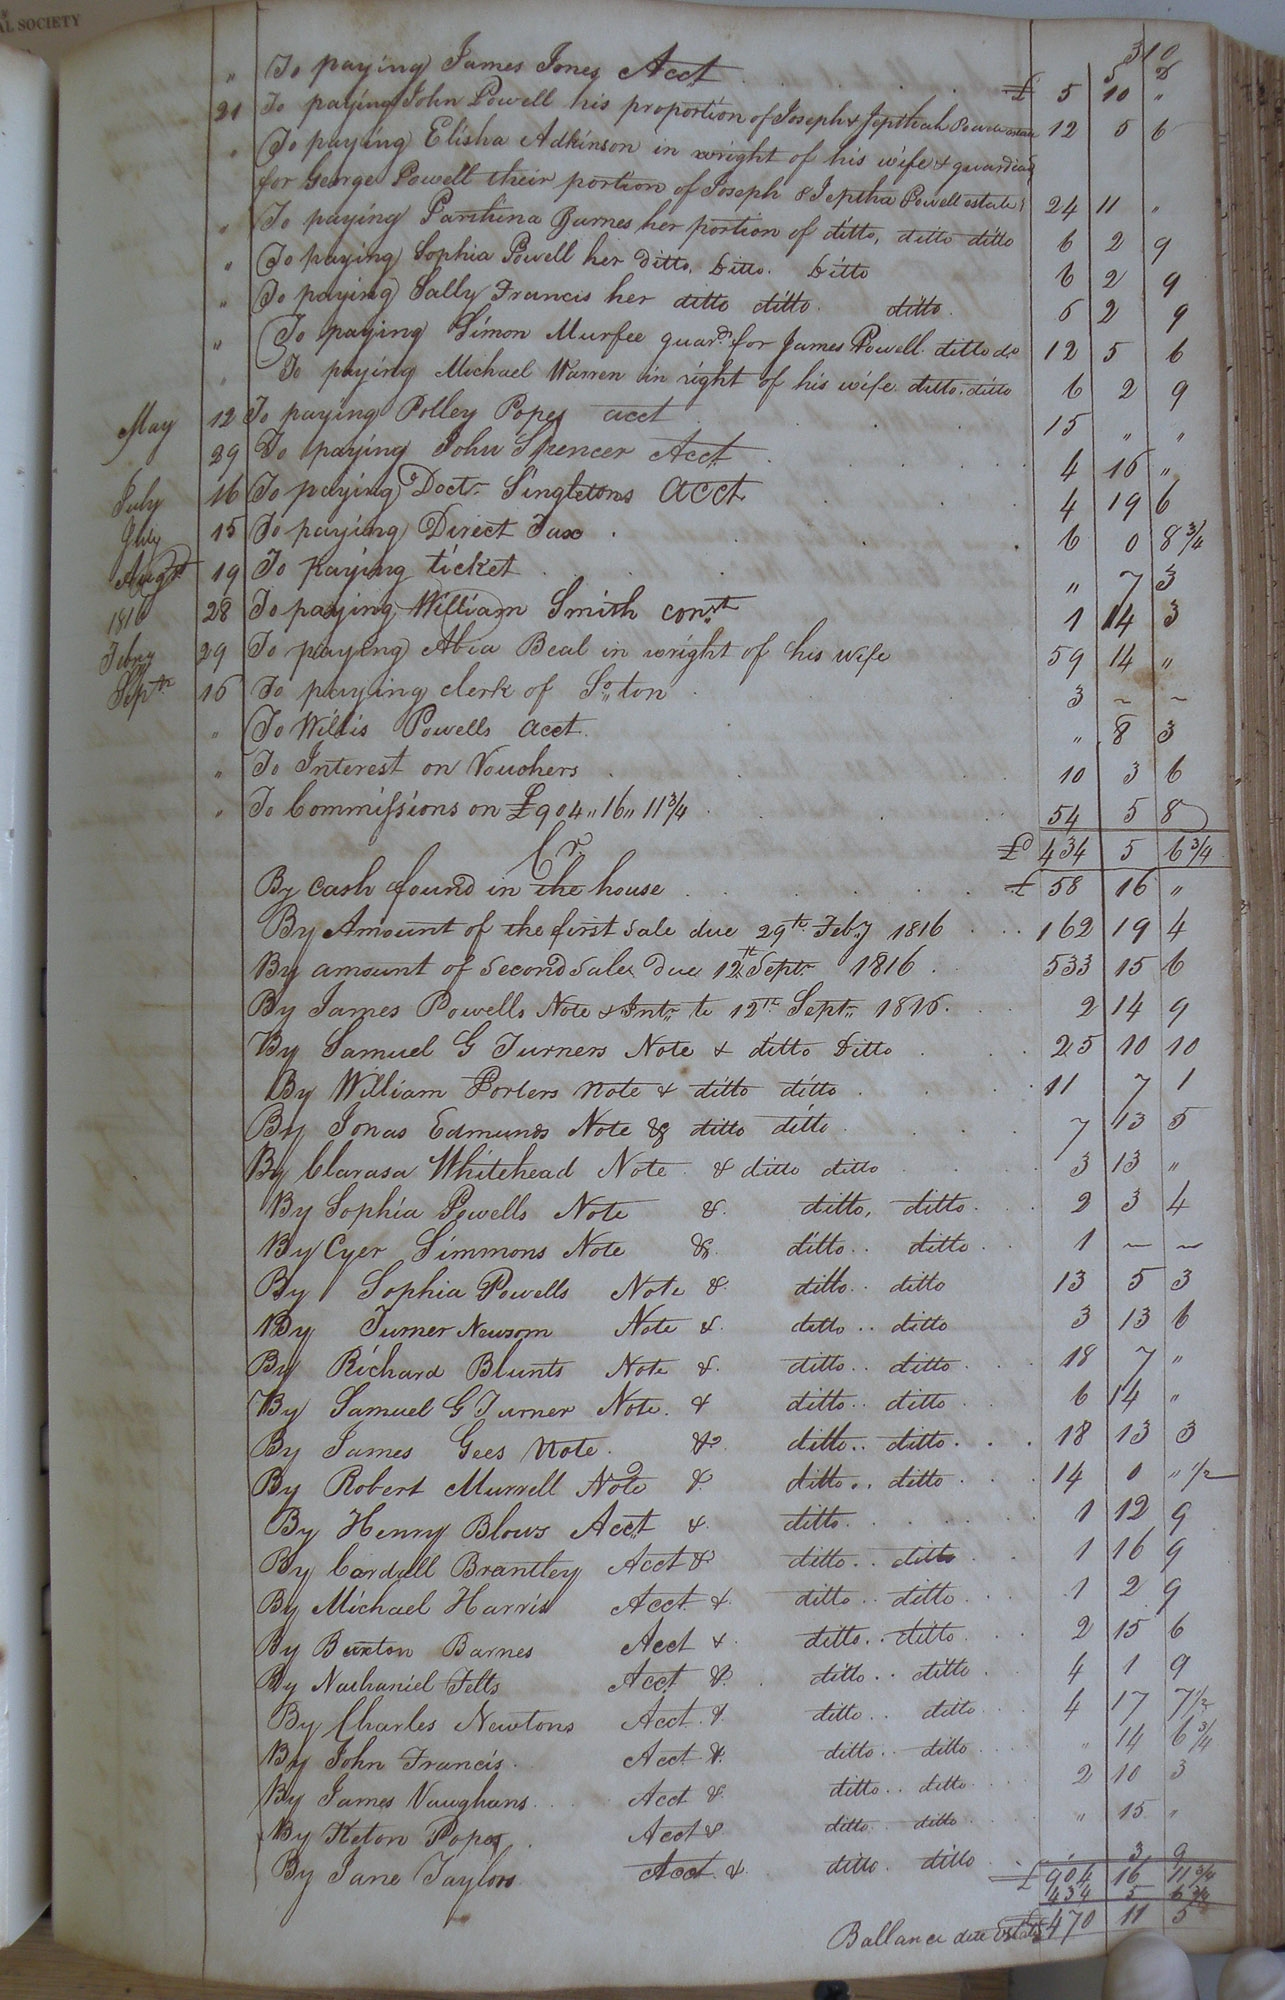 AL SOCIETY
310
" To paying James Jones Acct £ 5 10 "
21 To paying John Powell his proportion of Joseph & Jeptheah Powells estate 12 5 6
" To paying Elisha Adkinson in wright of his wife & guardian
for George Powell their portion of Joseph & Jeptha Powell estate 24 11 "
" To paying Parthena Barnes her portion of ditto, ditto ditto 6 2 9
" To paying Sophia Powell her Ditto. Ditto. Ditto 6 2 9
" To paying Sally Francis her ditto ditto ditto 6 2 9
" To paying Simon Murfee guard. for James Powell ditto do 12 5 6
" To paying Michael Warren in right of his wife ditto, ditto 6 2 9
May 12 To paying Polley Popes acct 15 " "
29 To paying John Spencer Acct 4 16 "
July 16 To paying Doctr Singletons acct 4 19 6
July 15 To paying Direct Tax 6 0 8 3/4
Augst 19 To paying ticket " 7 3
1816 28 To paying William Smith const 1 14 3
Febry 29 To paying Abia Beal in wright of his wife 59 14 "
Septr 16 To paying clerk of So ton 3 ~ ~
" To Willis Powells acct. " 8 3
" To Interest on Vouchers 10 3 6
" To Commissions on £904 " 16 " 11 3/4 54 5 8
£ 434 5 6 3/4
Cr.
By cash found in the house £ 58 16 "
By Amount of the first sale due 29th Feby 1816 162 19 4
By amount of Second Sale due 12th Septr 1816 533 15 6
By James Powells Note & Intr. to 12th Sept. 1816. 2 14 9
By Samuel G Turners Note & ditto Ditto 25 10 10
By William Porters note & ditto ditto 11 7 1
By Jonas Edmunds Note & ditto ditto 7 13 5
By Clarasa Whitehead Note & ditto ditto 3 13 "
By Sophia Powells Note &. ditto, ditto 2 3 4
By Cyer Simmons Note &. ditto.. ditto 1 ~ ~
By Sophia Powells Note &. ditto.. ditto 13 5 3
By Turner Newsom Note &. ditto.. ditto 3 13 6
By Richard Blunts Note &. ditto.. ditto 18 7 "
By Samuel G Turner Note. & ditto.. ditto 6 14 "
By James Gees Note. &. ditto.. ditto. 18 13 3
By Robert Murrell Note &. ditto.. ditto 14 0 " 1/2
By Henry Blows Acct &. ditto. 1 12 9
By Cordall Brantley Acct & ditto.. ditto 1 16 9
By Michael Harris Acct &. ditto.. ditto 1 2 9
By Buxton Barnes Acct &. ditto.. ditto 2 15 6
By Nathaniel Felts Acct &. ditto.. ditto 4 1 9
By Charles Newtons Acct. &. ditto.. ditto 4 17 7 1/2
By John Francis. Acct. &. ditto.. ditto " 14 6 3/4
By James Vaughans. Acct &. ditto.. ditto 2 10 3
By Keton Popes. Acct & ditto.. ditto " 15 "
By Jane Taylors Acct. &. ditto. ditto 3 9
£ 904 16 11 3/4
434 5 6 3/4
Ballance due Estate £ 470 11 5